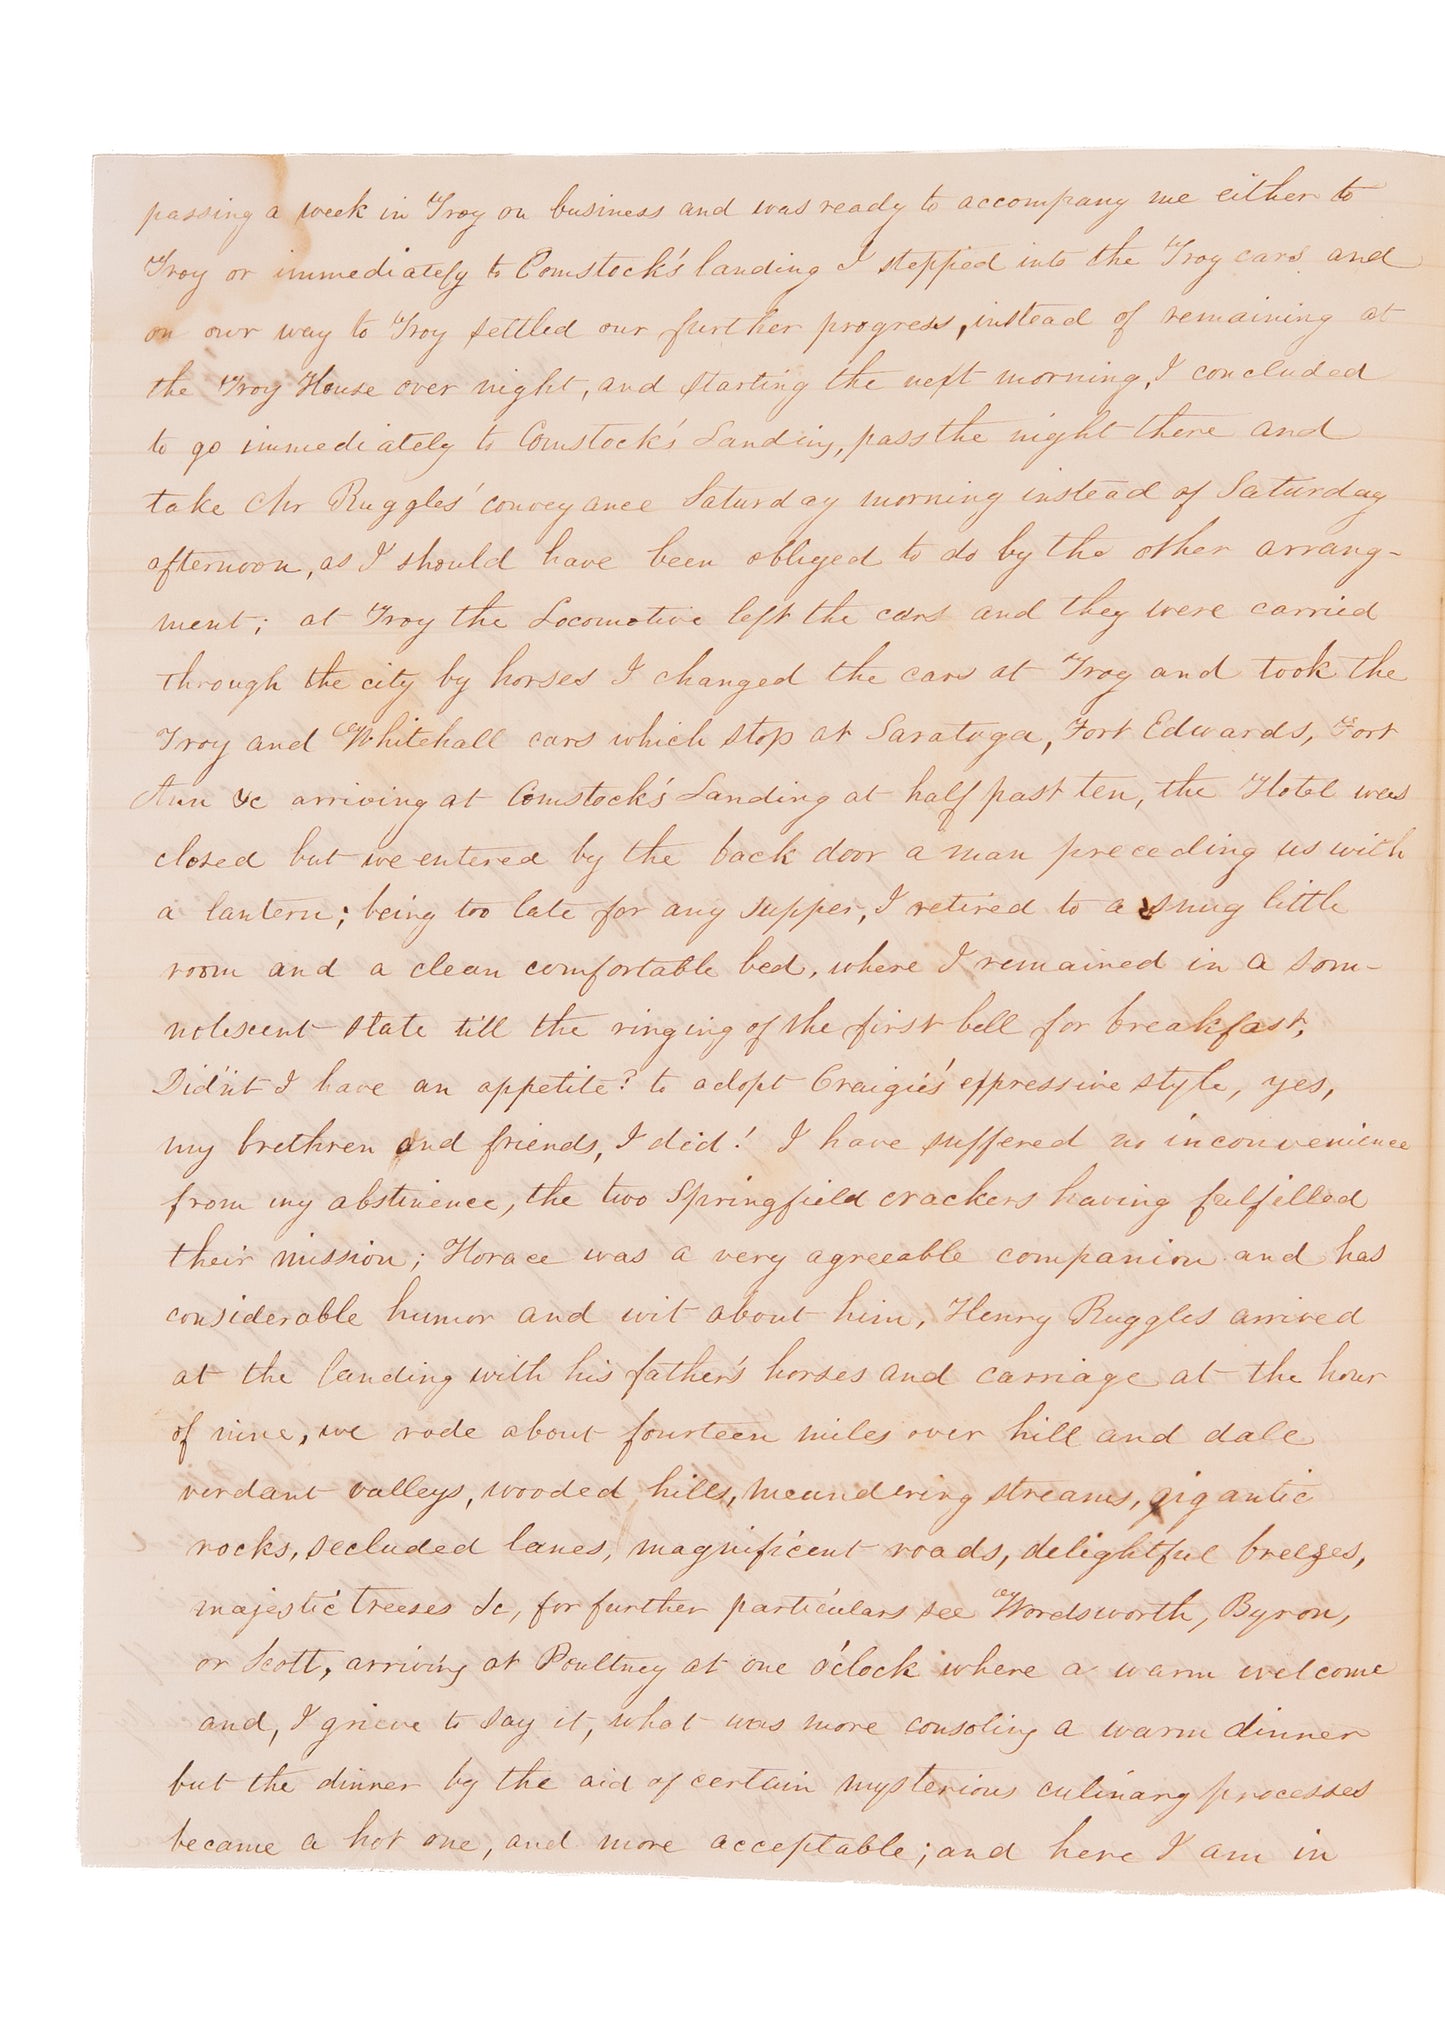 passing a week in Troy on business and was ready to accompany me either to
Troy or immediately to Comstock's landing I stepped into the Troy cars and
on our way to Troy settled our further progress, instead of remaining at
the Troy House over night, and starting the next morning, I concluded
to go immediately to Comstock's Landing, pass the night there and
take Mr Ruggles' conveyance Saturday morning instead of Saturday
afternoon, as I should have been obliged to do by the other arrang-
ment; at Troy the Locomotive left the cars and they were carried
through the city by horses I changed the cars at Troy and took the
Troy and Whitehall cars which stop at Saratoga, Fort Edwards, Fort
Ann &c arriving at Comstock's Landing at half past ten, the Hotel was
closed but we entered by the back door a man preceding us with
a lantern; being too late for any supper, I retired to a snug little
room and a clean comfortable bed, where I remained in a som-
nolescent state till the ringing of the first bell for breakfast,
Did'nt I have an appetite? to adopt Craigie's expressive style, yes,
my brethren and friends, I did! I have suffered no inconvenience
from my abstinence, the two Springfield crackers having fulfilled
their mission; Horace was a very agreeable companion and has
considerable humor and wit about him, Henry Ruggles arrived
at the landing with his father's horses and carriage at the hour
of nine, we rode about fourteen miles over hill and dale
verdant valleys, wooded hills, meandering streams, gigantic
rocks, secluded lanes, magnificent roads, delightful breezes,
majestic treeses &c, for further particulars see Wordsworth, Byron,
or Scott, arriving at Poultney at one o'clock where a warm welcome
and, I grieve to say it, what was more consoling a warm dinner
but the dinner by the aid of certain mysterious culinary processes
became a hot one, and more acceptable; and here I am in